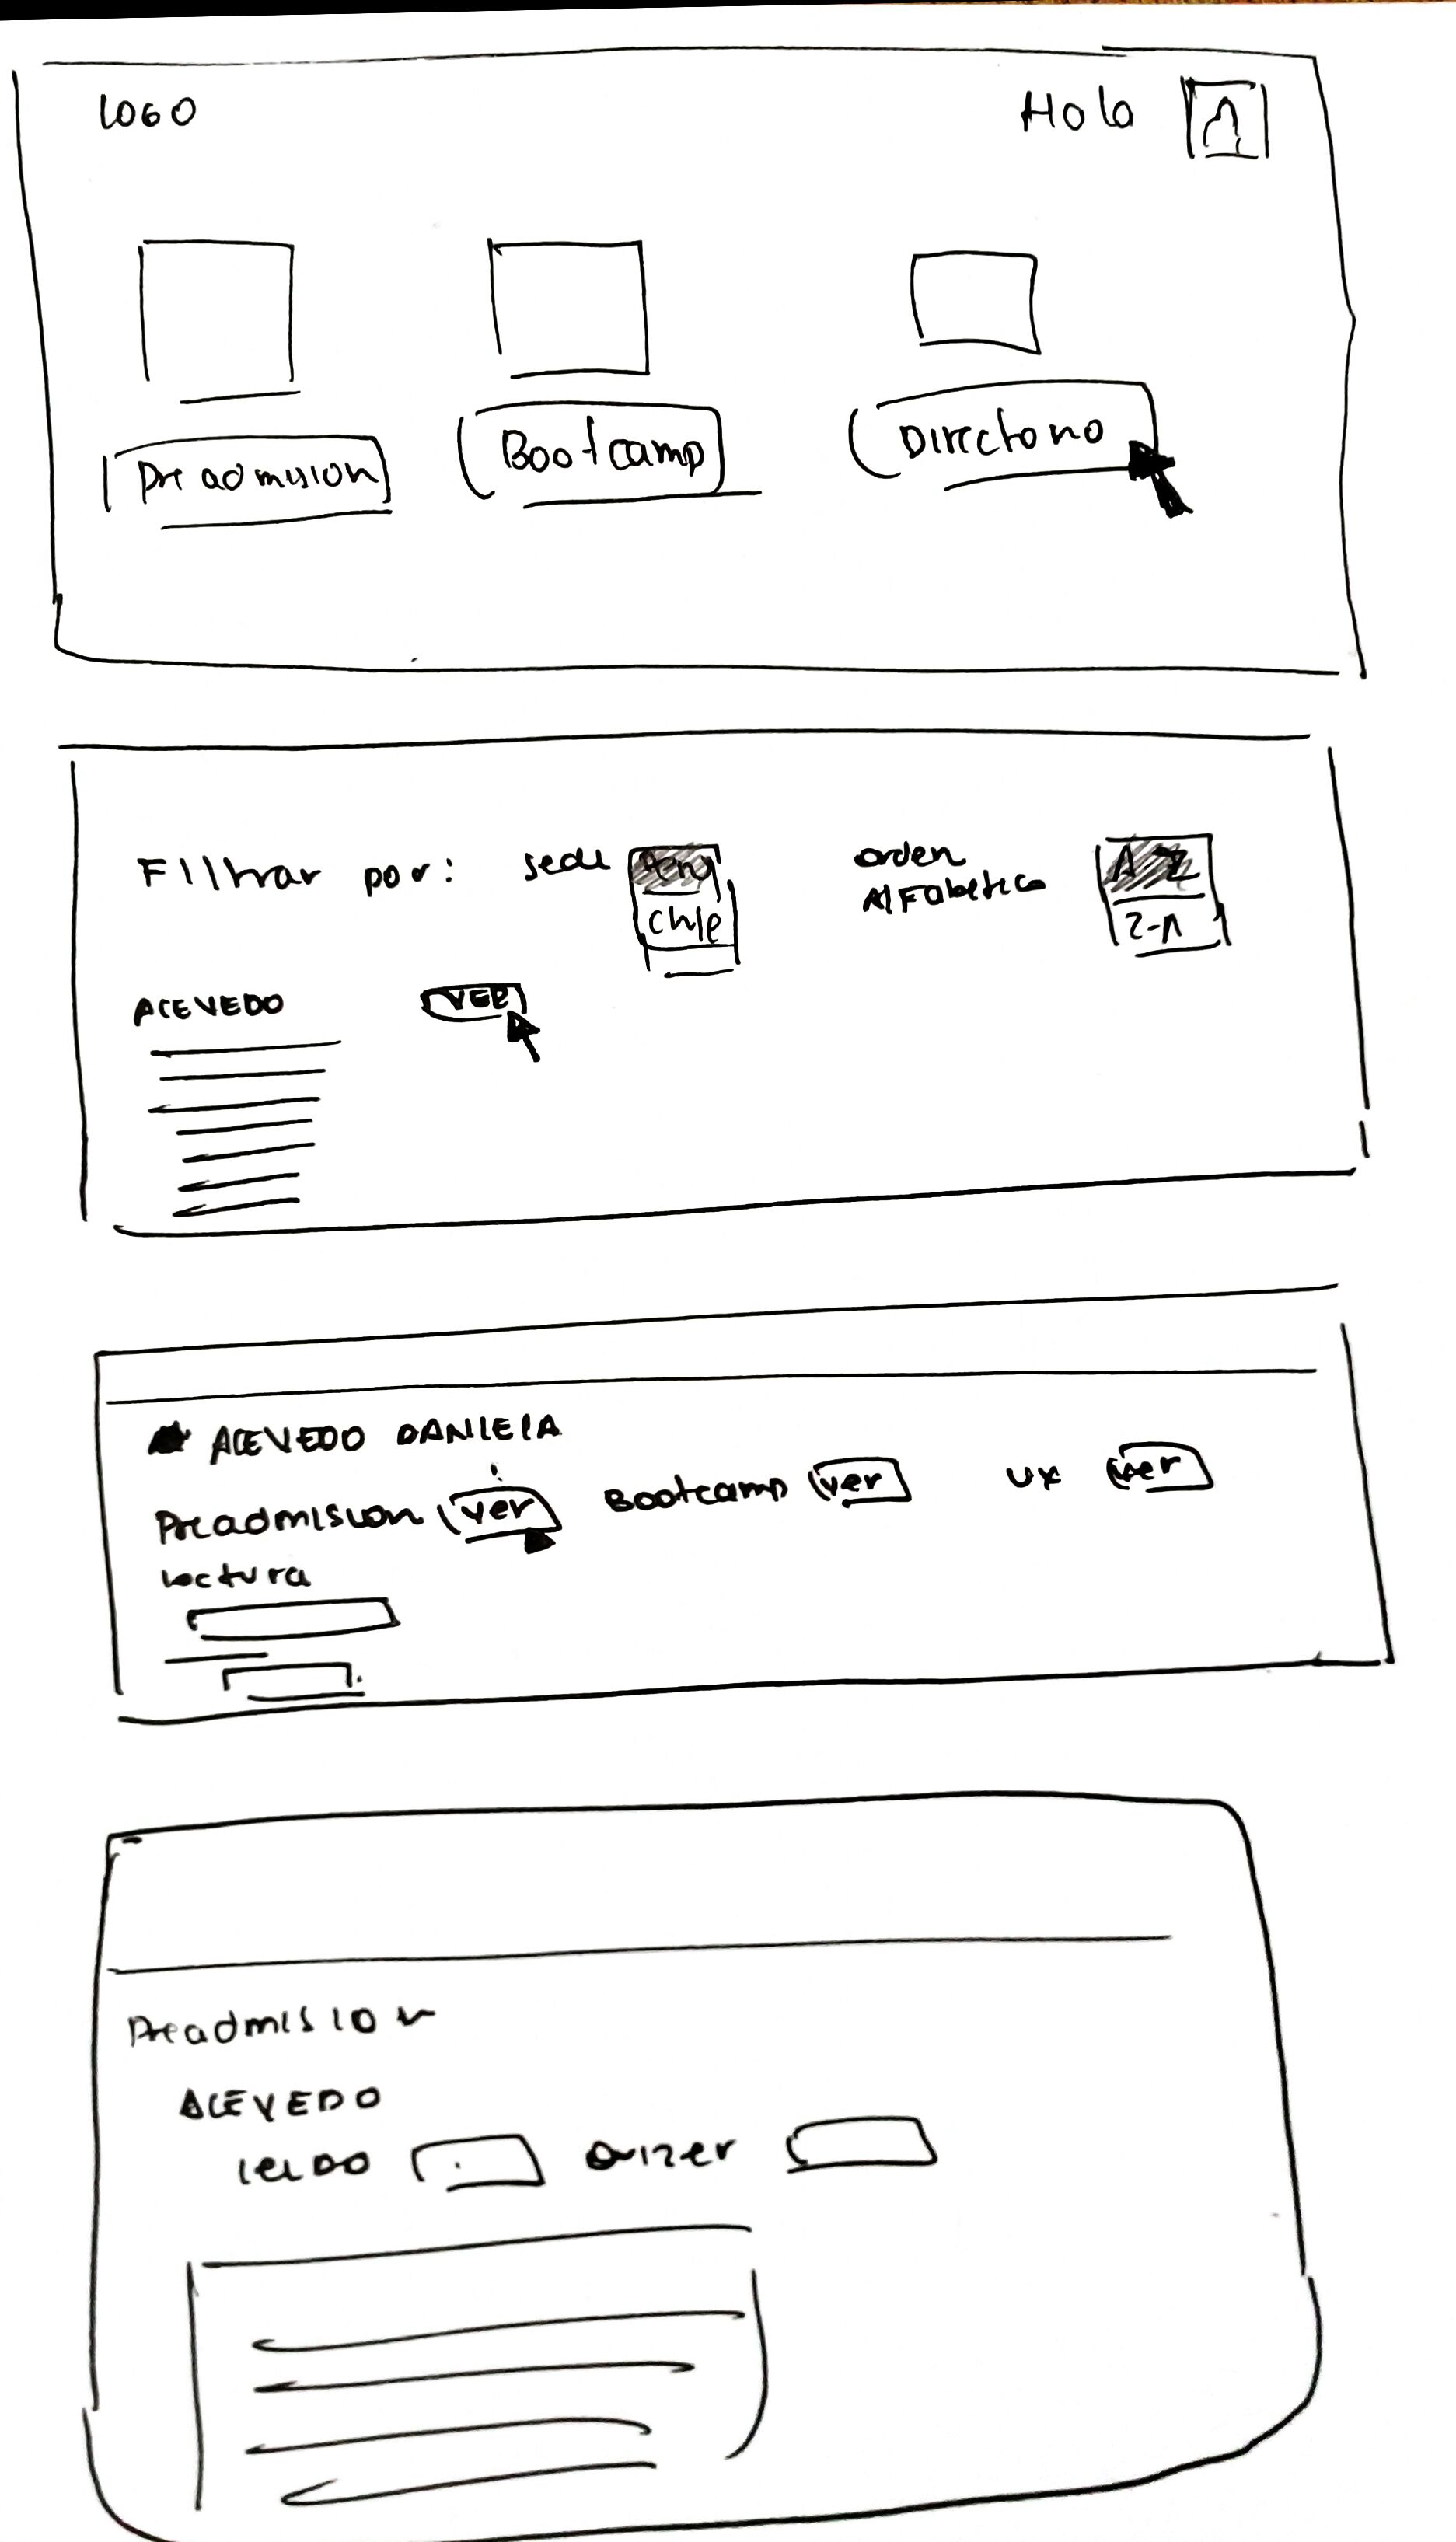 LOGO Hola
Preadmision Bootcamp Directorio
Filtrar por: sede Perú orden
Alfabetico A Z
chle Z-A
ACEVEDO VER
ACEVEDO DANIELA
Preadmision ver Bootcamp ver UX ver
Lectura
Preadmision
ACEVEDO
leido Quizer